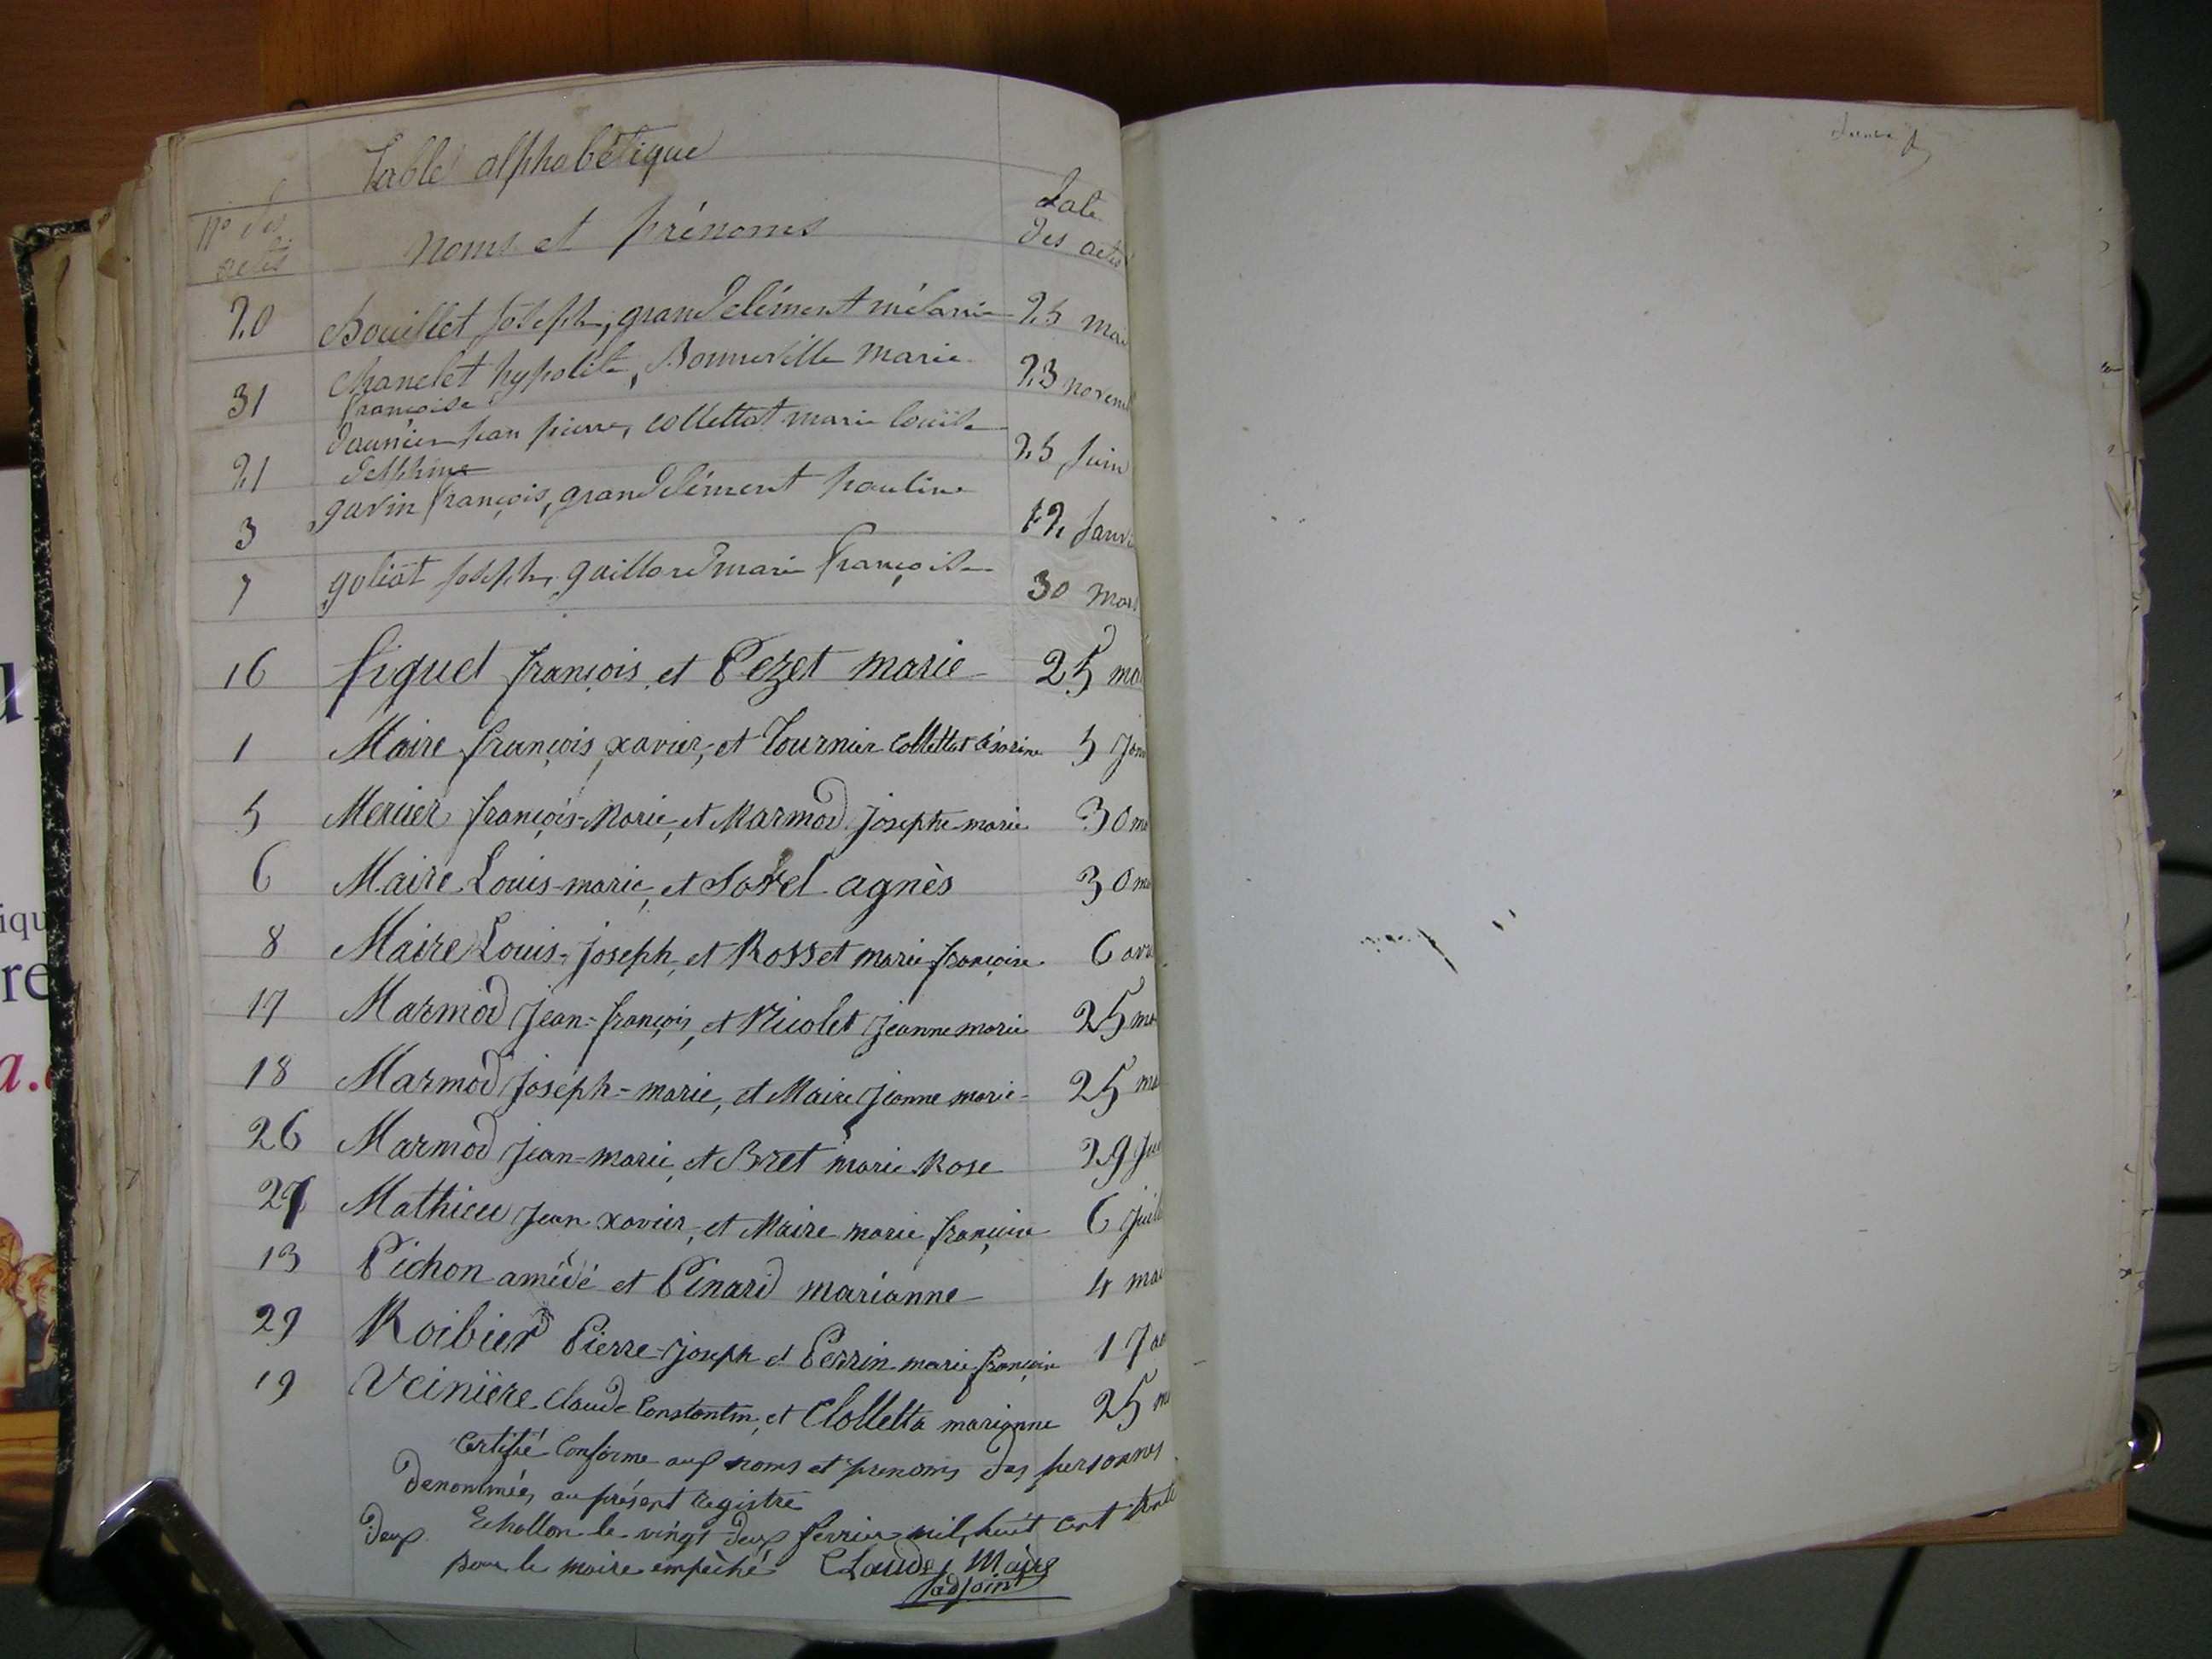 Table alphabétique
N° des actes
noms et prénoms
Date des actes
20 Bouillet Joseph, grandclément mélanie 25 mai
31 Chanelet hypolite, Bonneville marie françoise 23 novem
21 Daunier jean pierre, collettat marie louise delphine 25 Juin
3 gavin françois, grandclément pauline 12 Janvi
7 goliat joseph, gaillard marie françoise 30 mars
16 figuet françois et Pezet marie 25 ma
1 Maire françois xavier, et Tournier Collettat Césarine 5 Jan
5 Mercier françois-Marie, et Marmod josephe-marie 30 ma
6 Maire Louis-marie, et Sorel agnès 30 ma
8 Maire Louis-joseph, et Rosset marie françoise 6 avr
17 Marmod Jean-françois, et Nicolet Jeanne marie 25 ma
18 Marmod Joseph-marie, et Maire Jeanne marie 25 ma
26 Marmod Jean-marie, et Bret marie Rose 29 Jui
27 Mathieu Jean xavier, et Maire marie françoise 6 Juill
13 Pichon amédé et Pinard marianne 4 mai
29 Roibier Pierre-Joseph et Perrin marie françoise 17 ao
19 Veinière Claude Constantin, et Clolletta marianne 25 m
Certifié Conforme aux noms et prenoms des personnes
denommées au présent Registre
Echallon le vingt deux fevrier mil huit cent trente
deux.
pour le maire empêché Claude Maire
adjoint